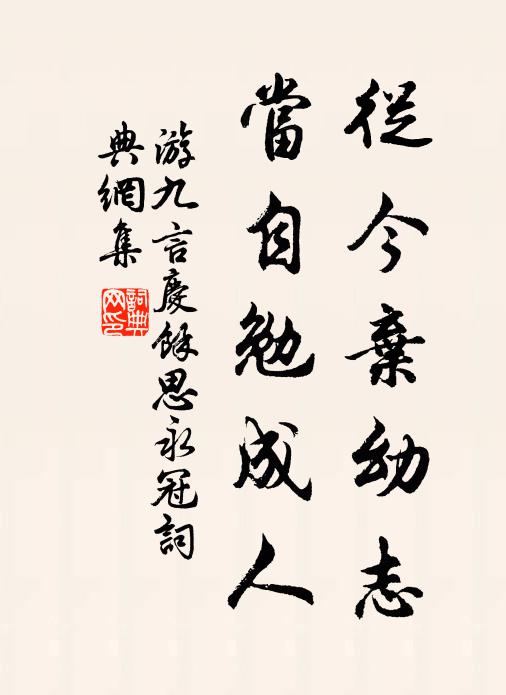 從今棄幼志
當自勉成人
游九言慶餘思永冠詞
典網集
詞典網印